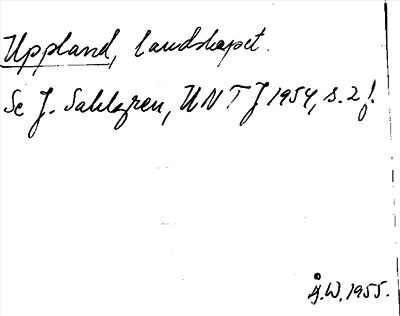 Uppland, landskapet.
Se J. Sahlgren, UNT J 1954, s. 2 f.
Å.W. 1955.